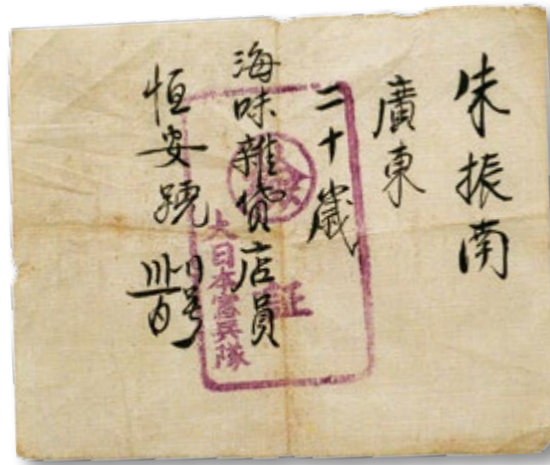 朱振南
廣東
二十歲
海味雜貨店員
恒安號
検
証
大日本憲兵隊